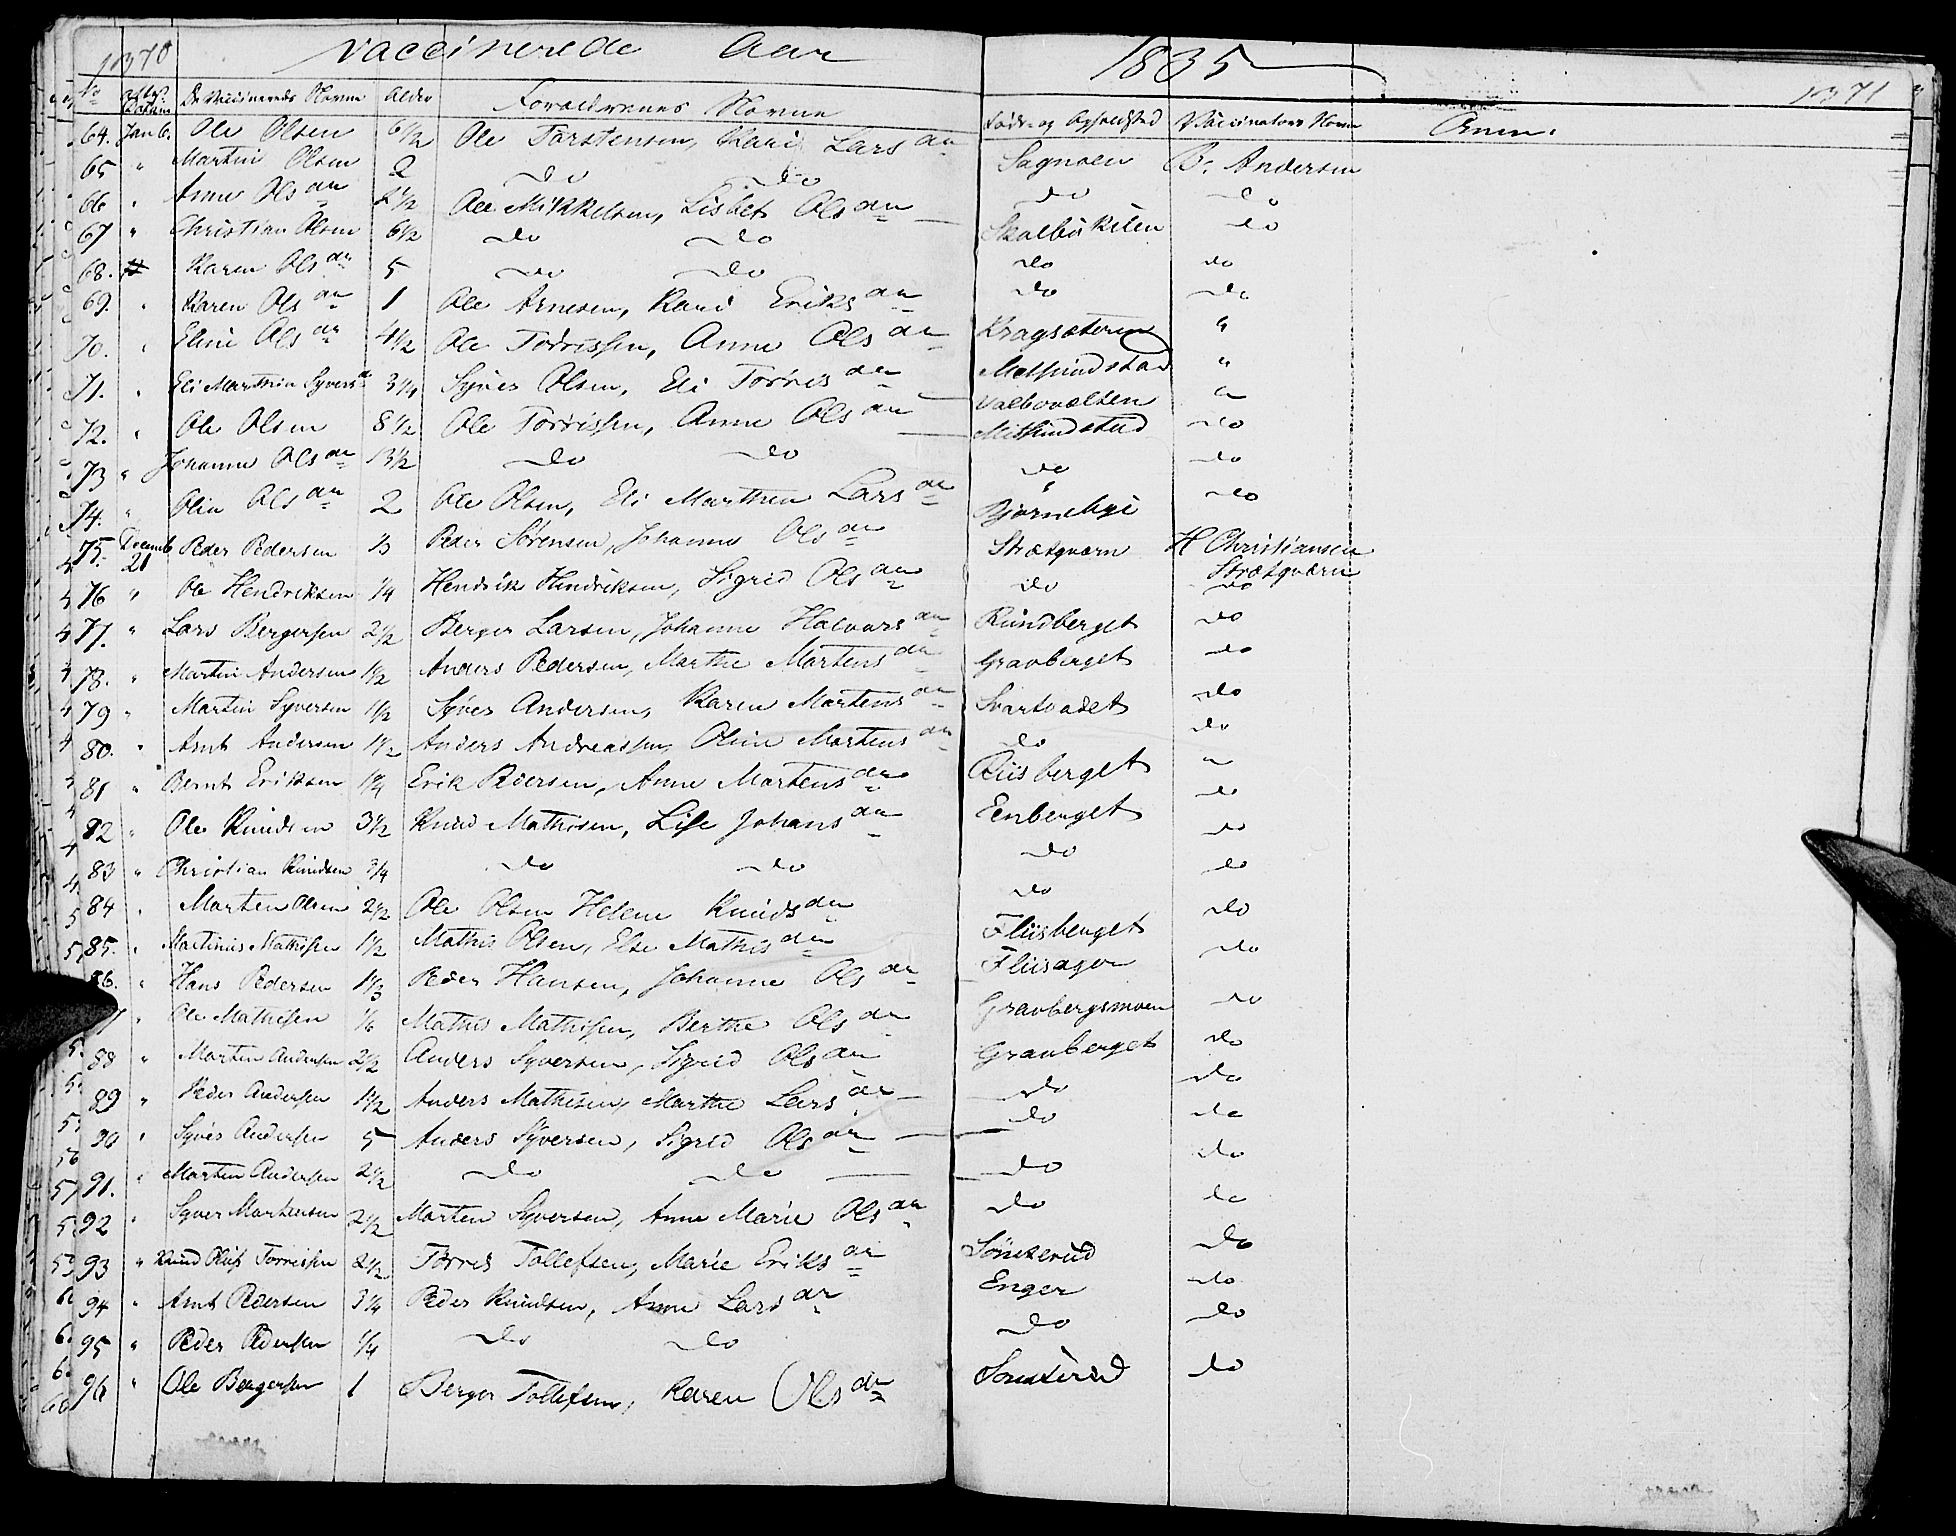 1370 Vaccinerede Aar 1835 1371
No attest. Datum De Vaccineredes Navne Alder Forældrenes Navne Føde- og Opholdsted Vaccinateurs Navne Anm.
64. Jan 6. Ole Olsen 6 1/2 Ole Torstensen, Kari Lars dr Sagmoen B. Andersen
65 " Martin Olsen 2 do do do do
66 " Anne Ols dr 2 1/2 Ole Mikkelsen, Lisbet Ols dr Skalbukilen do
67 " Christian Olsen 6 1/2 do do do do
68. " Karen Ols dr 5 do do do do
69. " Karen Ols dr 1 Ole Arnesen, Kari Eriks dr Kragsæteren "
70. " Eline Ols dr 4 1/2 Ole Torrissen, Anne Ols dr "
71. " Eli Marthea Syvers d 3 1/4 Syver Olsen, Eli Torris dr Valbovolten "
72. " Ole Olsen 8 1/2 Ole Torrissen, Anne Ols dr do
73 " Johanne Ols dr 13 1/2 do do do do
74. " Olea Ols dr 2 Ole Olsen, Eli Marthea Lars dr do
75. Decemb 21 Peder Pedersen 1/3 Peder Sørensen, Johanne Ols dr Strætqværn H Christiansen Strætqværn
76 " Ole Hendriksen 1/4 Hendrik Hendriksen, Sigrid Ols dr do do
77. " Lars Bergersen 2 1/2 Berger Larsen, Johanne Halvors dr Rundberget do
78. " Martin Andersen 1 1/2 Anders Pedersen, Marthe Martens dr Gravberget do
79 " Martin Syversen 1 1/2 Syver Andersen, Karen Martens dr Svartvadet do
80. " Arnt Andersen 1 1/2 Anders Andreassen, Oline Martens dr do do
81 " Bernt Eriksen 1 1/4 Erik Pedersen, Anne Martens dr Riisberget "
82 " Ole Knudsen 3 1/2 Knud Mathisen, Lise Johans dr Eenberget do
83 " Christian Knudsen 3/4 do do do do
84 " Marten Olsen 2 1/2 Ole Olsen Helene Knuds dr do do
85. " Martinus Mathisen 1 1/2 Mathis Olsen, Else Mathis dr Fliisberget do
86. " Hans Pedersen 1 1/3 Peder Hansen, Johanne Ols dr Fliisagen do
" Ole Mathisen 1/6 Mathis Mathisen, Berthe Ols dr Gravbergsmoen do
88 " Marten Andersen 2 1/2 Anders Syversen, Sigrid Ols dr Gravberget do
89 " Peder Andersen 1 1/2 Anders Mathisen, Marthe Lars dr do do
90 " Syver Andersen 5 Anders Syversen, Sigrid Ols dr do do
91. " Marten Andersen 2 1/2 do do do do
92 " Syver Martensen 2 1/2 Marten Syversen, Anne Marie Ols dr do do
93 " Knud Oluf Torrissen 2 1/2 Torris Tollefsen, Marie Eriks dr Sønserud do
94 " Arnt Pedersen 3 1/4 Peder Knudsen, Anne Lars dr Enger do
95 " Peder Pedersen 1/4 do do do do
96 " Ole Bergersen 1 Berger Tollefsen, Karen Ols dr Sønserud do